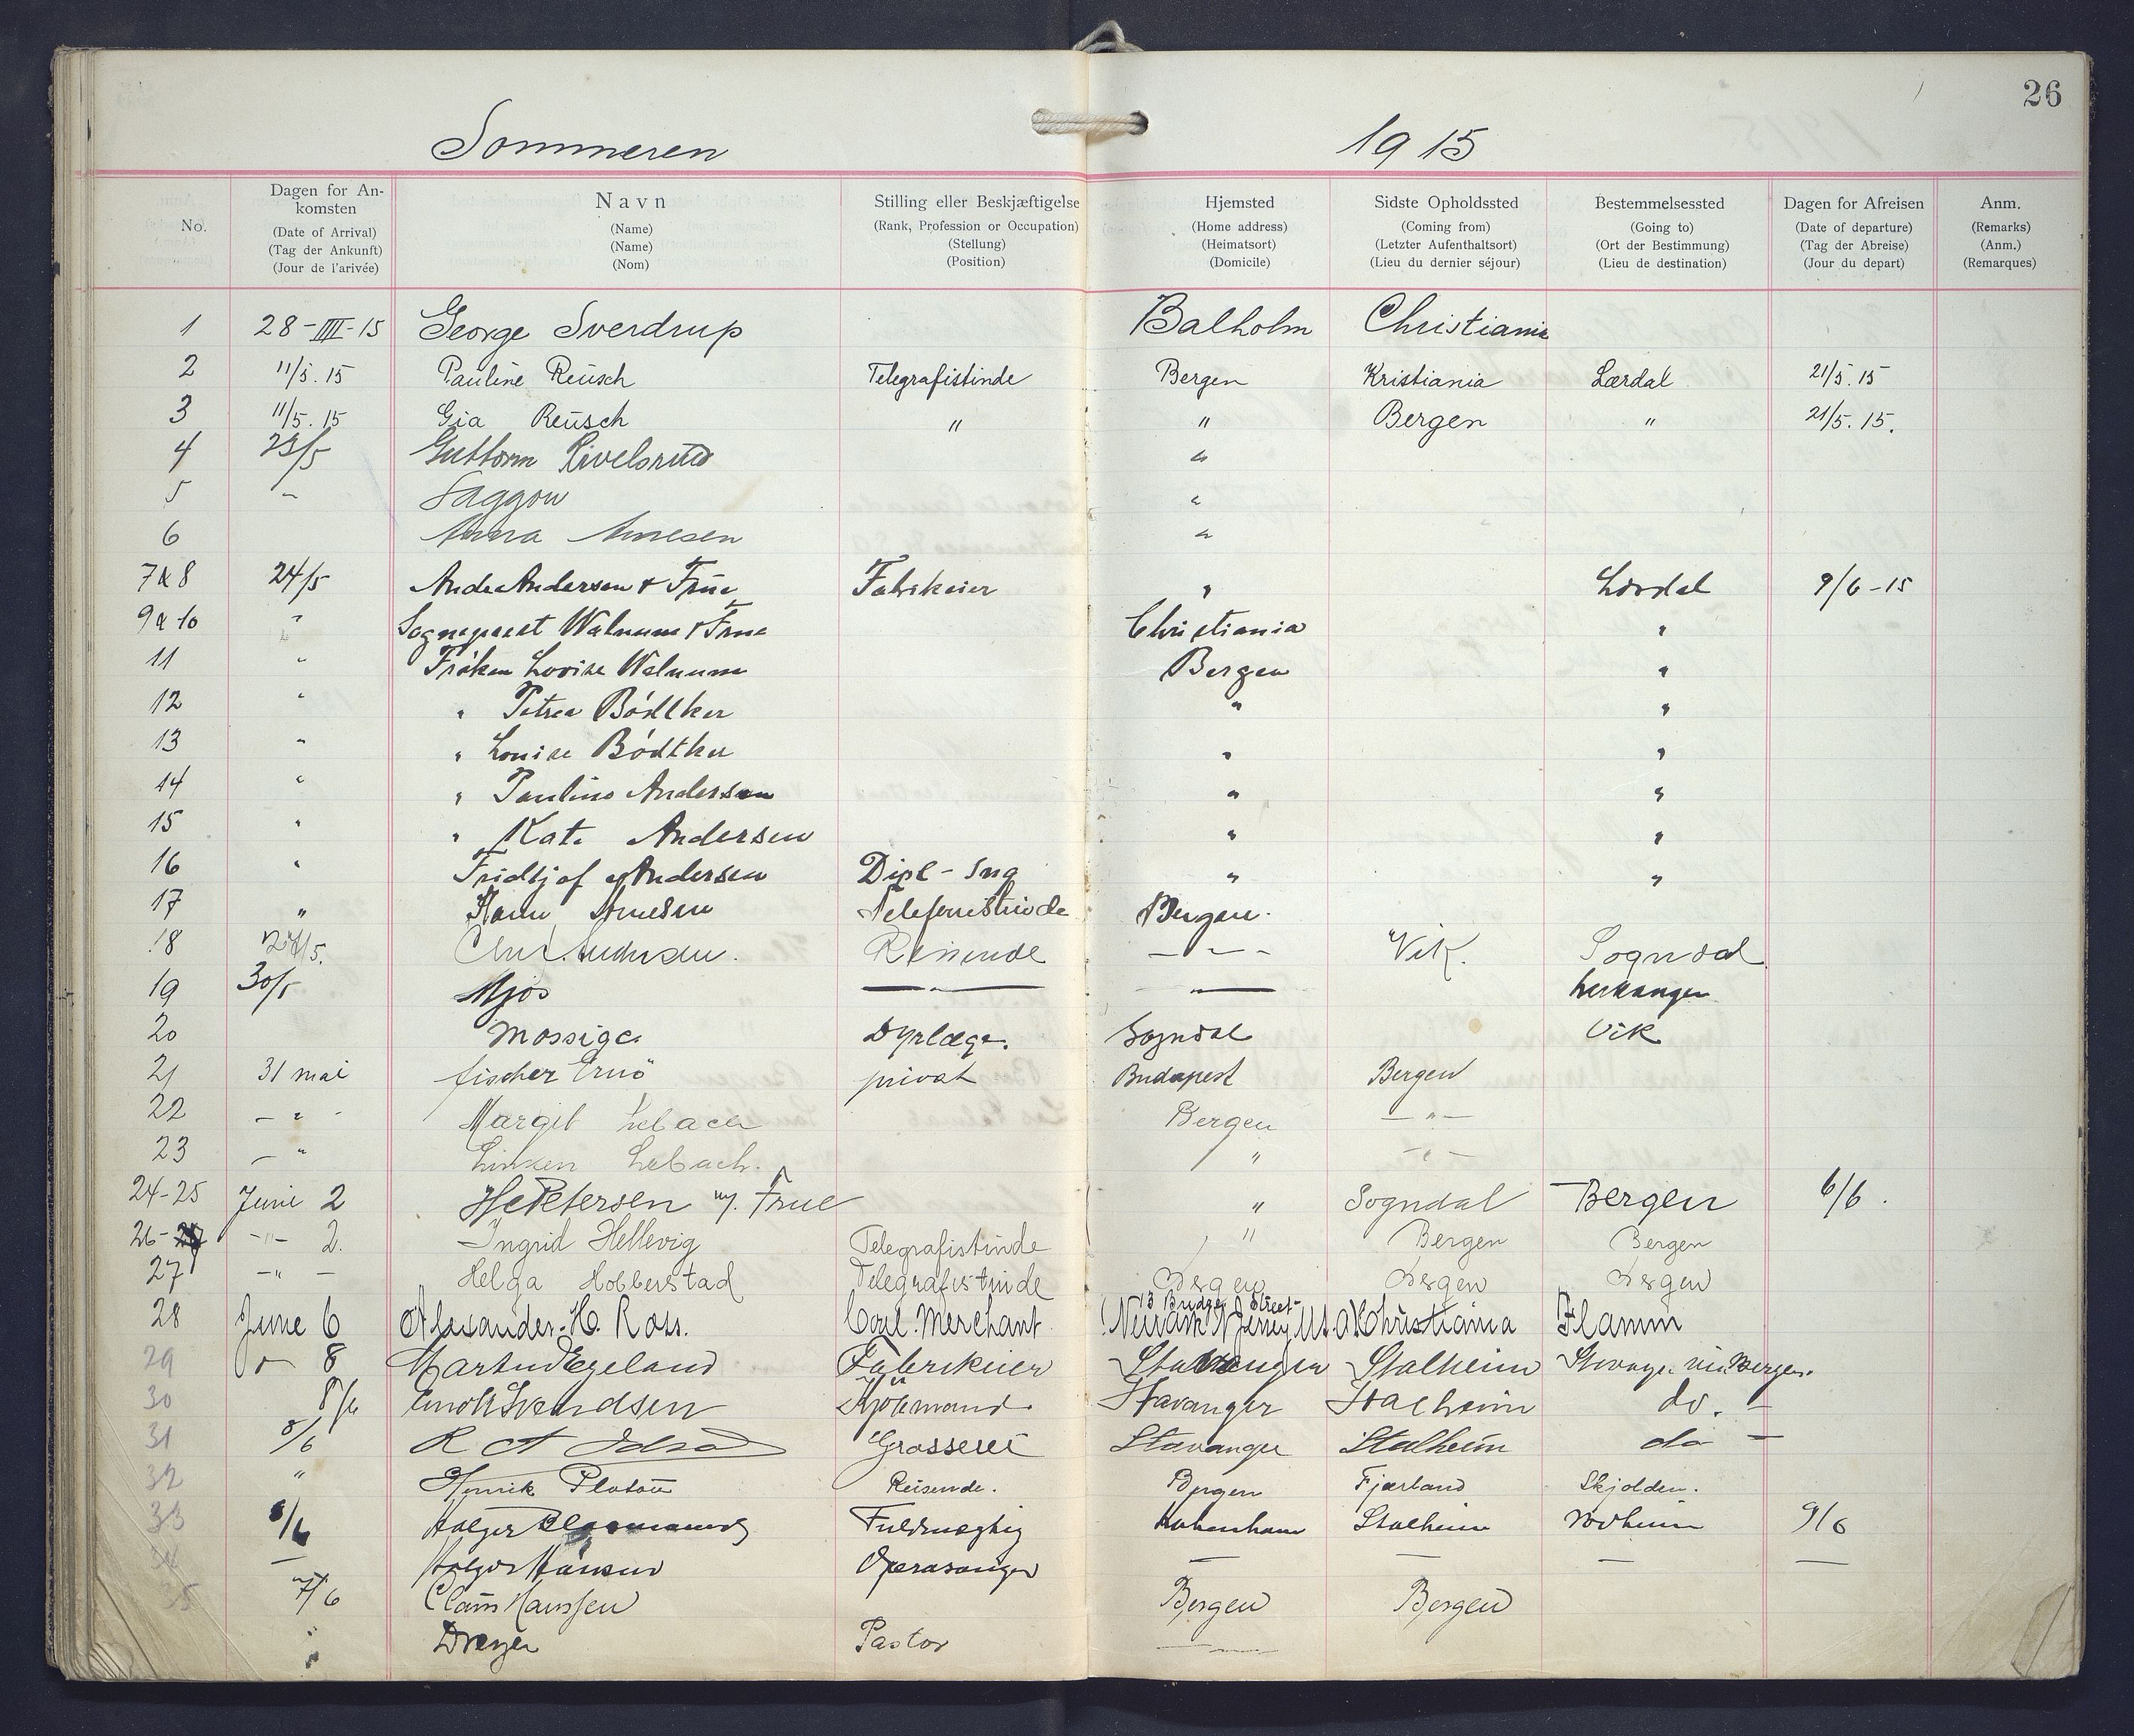 26
Sommeren 1915
No. Dagen for An- Navn Stilling eller Beskjæftigelse Hjemsted Sidste Opholdssted Bestemmelsessted Dagen for Afreisen Anm.
komsten
(Date of Arrival) (Name) (Rank, Profession or Occupation) (Home address) (Coming from) (Going to) (Date of departure) (Remarks)
(Tag der Ankunft) (Name) (Stellung) (Heimatsort) (Letzter Aufenthaltsort) (Ort der Bestimmung) (Tag der Abreise) (Anm.)
(Jour de l'arivée) (Nom) (Position) (Domicile) (Lieu du dernier séjour) (Lieu de destination) (Jour du depart) (Remarques)
1 28-III-15 George Sverdrup Balholm Christiania
2 11/5.15 Pauline Reusch Telegrafistinde Bergen Kristiania Lærdal 21/5.15
3 11/5.15 Gia Reusch " " Bergen " 21/5.15.
4 23/5 Guttorm "
5 - "
6 Anna Arnesen "
7&8 24/5 Andr Andersen & Frue Fabrikeier " Lærdal 9/6-15
9&10 " Sogneprest Walnum & Frue Christiania "
11 " Frøken Lovise Walnum Bergen "
12 " " Petrea Bødtker " "
13 " " Louise Bødtker " "
14 " " Pauline Andersen " "
15 " " Kate Andersen " "
16 " Fridtjof Andersen Dipl-Ing " "
17 " Arnesen Telefonistinde Bergen.
18 Reisende - " - Vik. Sogndal
19 30/5 Mjøs - " - - " - Leikanger
20 Mossige Dyrlæge. Sogndal Vik
21 31 mai fischer Ernö privat Budapest Bergen
22 - " - Margit Lebach Bergen - " -
23 - " Linken Lebach. " - " -
24-25 Juni 2 H C Petersen m/. Frue " Sogndal Bergen 6/6.
26- - " - 2. Ingrid Hellevig Telegrafistinde " Bergen Bergen
27 - " - Helga Hobberstad Telegrafistinde Bergen Bergen Bergen
13 Bridge Street
28 June 6 Alexander. H. Ross. Coal. Merchant Newark N Jersey U.S.A Christiania Flamm
29 " 8 Martin Egeland Fabrikeier Stavanger Stalheim Stavanger via Bergen.
30 8/6 Enok Svendsen Kjøbmand Stavanger Stalheim do. -
31 8/6 Grosserer Stavanger Stalheim do -
32 " Henrik Platou Reisende. Bergen Fjærland Skjolden.
33 8/6 Holger Fuldmægtig Kobenhavn Stalheim Vadheim 9/6
34 - Holger Hansen Operasanger - - - -
35 7/6 Hanssen Bergen Bergen
" Dreyer Pastor - " -